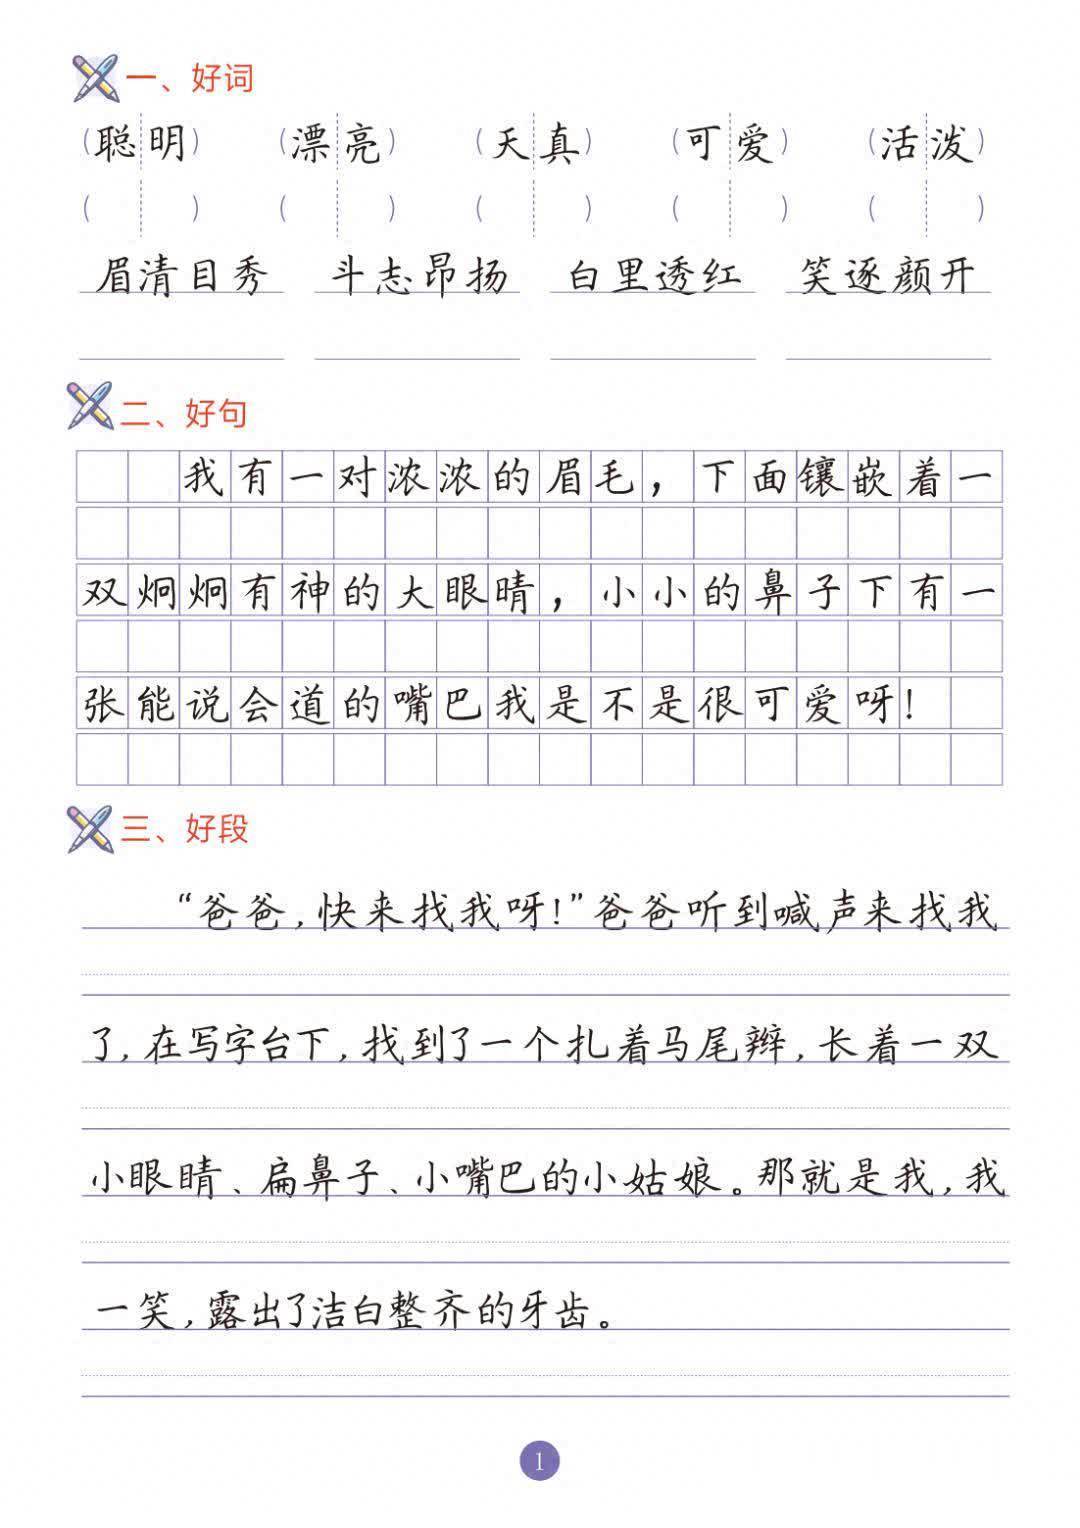 一、好词
(聪明) (漂亮) (天真) (可爱) (活泼)
( ) ( ) ( ) ( ) ( )
眉清目秀 斗志昂扬 白里透红 笑逐颜开
二、好句
我有一对浓浓的眉毛，下面镶嵌着一
双炯炯有神的大眼睛，小小的鼻子下有一
张能说会道的嘴巴我是不是很可爱呀！
三、好段
“爸爸，快来找我呀！”爸爸听到喊声来找我
了，在写字台下，找到了一个扎着马尾辫，长着一双
小眼睛、扁鼻子、小嘴巴的小姑娘。那就是我，我
一笑，露出了洁白整齐的牙齿。
1